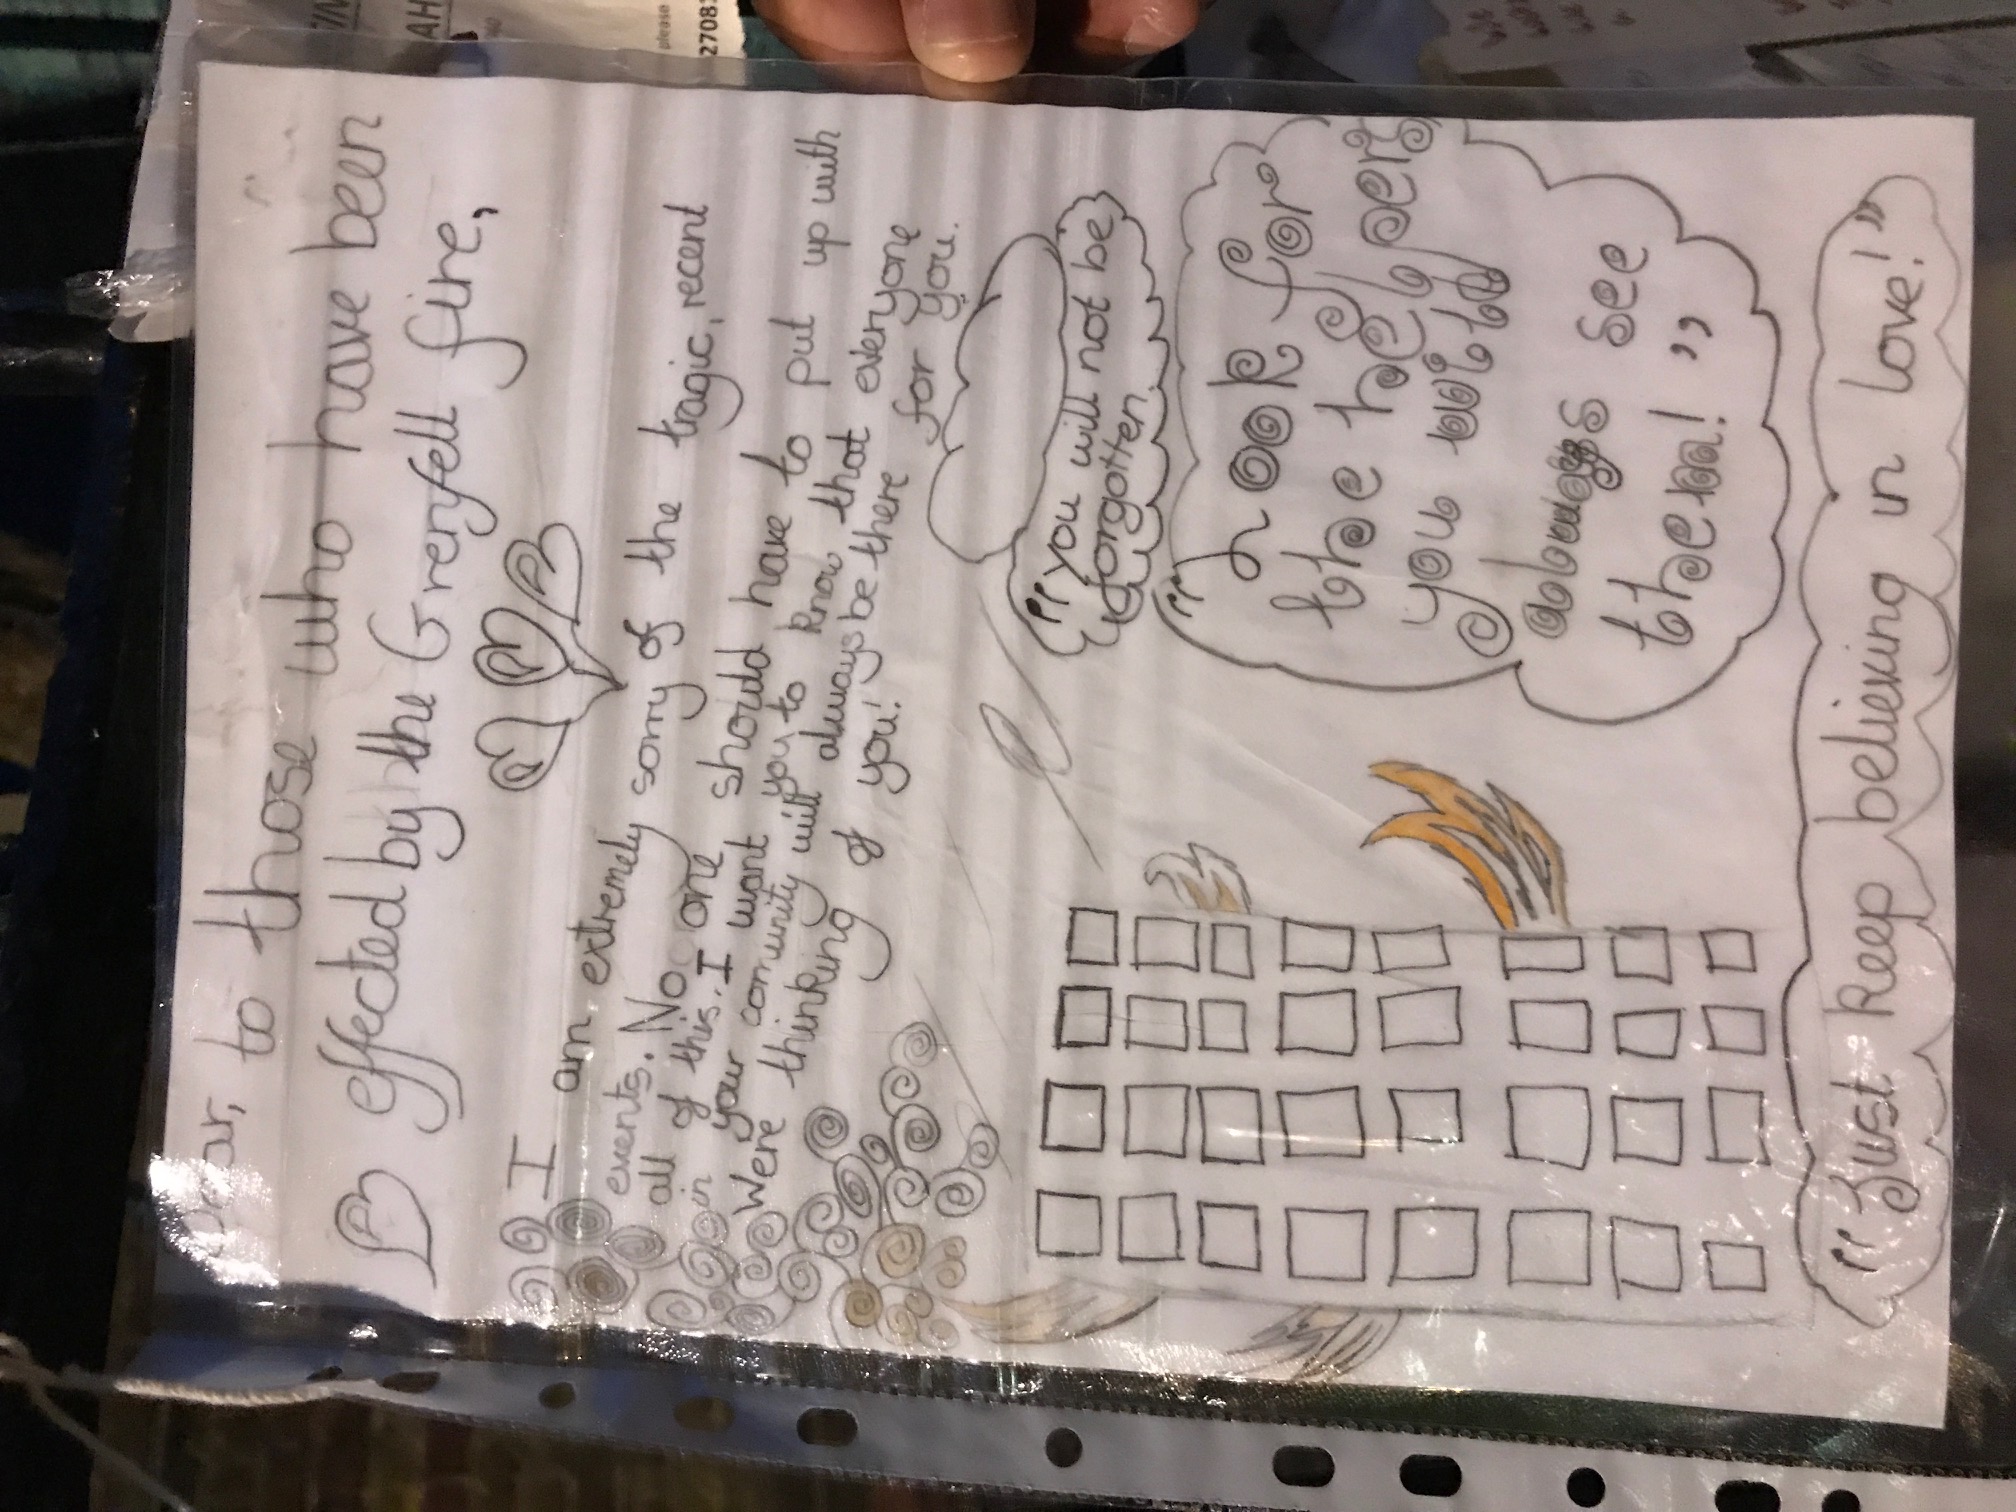 Dear, to those who have been
effected by the Grenfell fire,
I am extremely sorry of the tragic, recent
events. No one should have to put up with
all of this. I want you to know that everyone
in your community will always be there for you.
Were thinking of you!
"you will not be
forgotten"
"Look for
the helpers
you will
always see
them!"
"Just Keep believing in love!"
AH
please
2708